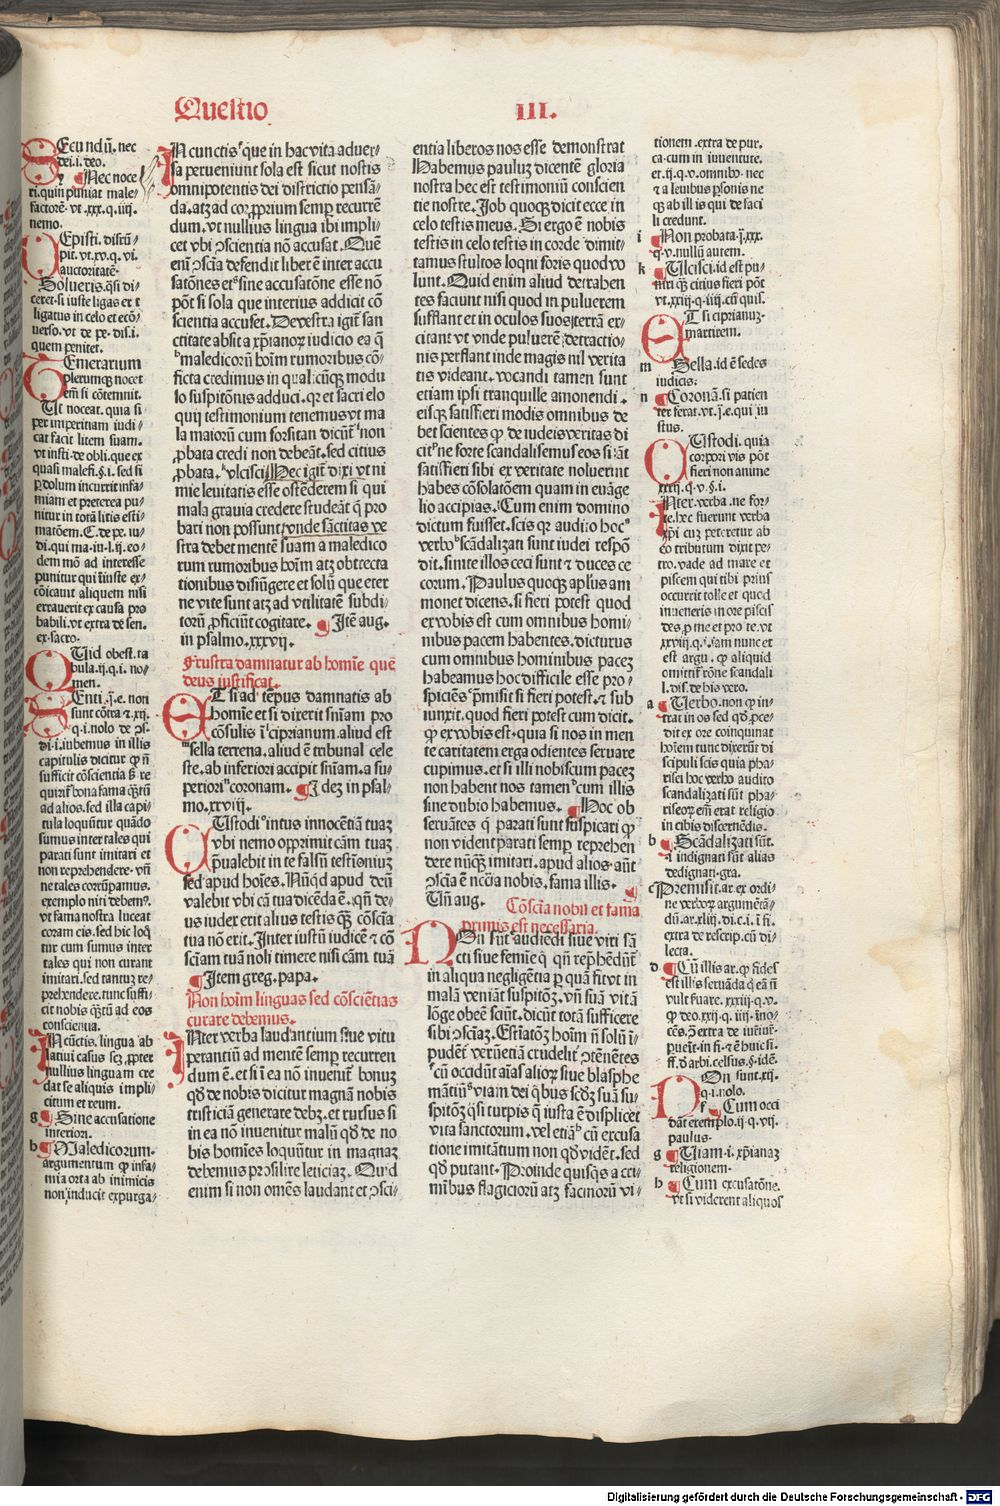 Questio III.
Secundũ. nec
dei. i. deo.
y ¶ Nec noce
ri. quin puniat male⸗
factorē. vt .xxx. q. iiij.
nemo.
Episti. discũ⸗
pit. vt. xv. q. vi.
auctoritatē.
Solueris. q̃si di⸗
ceret. si iuste ligas er t
ligatus in celo et ecõ⸗
uerso. vt de pe. dis. i.
quem penitet.
Temeratium
plerumqꝫ nocet
Ut noceat. quia si
per imperitiam iudi⸗
cat facit litem suam.
vt insti. de obli. que ex
quasi malefi. §. i. sed si
niam et preterea pu⸗
nitur in totã litis esti⸗
matõem. C. de pe. iu⸗
di. qui ma. iu. l. ij. eo⸗
dem mõ ad interesse
punitur qui iiuste ex⸗
cõicauit aliquem nisi
errauerit ex causa pro
babili. vt extra de sen.
ex. sacro.
Quid obest. ta
bula. ij. q. i. no⸗
men.
sunt cõtra
di. i. iubemus in illis
capitulis dicitur
sufficit cõscientia
ad alios. sed illa capi⸗
tula loquũtur quãdo
sumus inter tales qui
parati sunt imitari et
non reprehendere. vñ
ne tales corrũpamus.
exemplo niti debemꝰ.
vt fama nostra luceat
coram eis. sed hic loq̃
tur cum sumus inter
tales qui non curant
imitari. sed tantuꝫ re⸗
prehendere. tunc suffi⸗
cit nobis q̃ȝtũ ad eos
conscientia.
In cũctis. lingua ab
latiui casus scꝫ. ꝓpter
nullius linguam cre
dat se aliquis impli⸗
citum et reum.
g ¶ Sine accusatione
interiori.
h ¶ Maledicorum.
argumentum ꝙ infa⸗
mia orta ab inimicis
non inducit expurga⸗
In cunctis que in hac vita aduer⸗
sa perueniunt sola est sicut nostis
omnipotentis dei districtio pensã⸗
da. atqꝫ ad cor proprium semper recurrẽ
dum. vt nullius lingua ibi impli⸗
cet vbi ꝯscientia nõ accusat. Quẽ
eni ꝯscĩa defendit liber ẽ inter accu
satões et sine accusatõne esse nõ
põt si sola que interius addicit cõ
scientia accuset. De vestra igit san
ctitate absit a xp̃ianoꝝ iudicio ea q̃
maledicorũ hoĩm rumoribus cõ⸗
ficta credimus in qualicũqꝫ modu
lo suspitõnis adduci. qꝛ et sacri elo
quij testimonium tenemus vt ma
la maiorũ cum forsitan dicũt non
ꝓbata credi non debeãt. sed citius
ꝓbata vlcisci. Hec igit dixi vt ni
mie leuitatis esse ostẽderem si qui
mala grauia credere studeãt q̃ pro
bari non possunt. vnde sãctitas ve
stra debet mentẽ suam a maledico
rum rumoribus hoĩm atqꝫ obtrecta
tionibus disiũgere et solũ que eter
ne vite sunt atqꝫ ad vtilitatẽ subdi⸗
torũ ꝓficiũt cogitare. ¶ Itẽ aug.
in psalmo. xxxvij.
Frustra damnatur ab homĩe quẽ
deus iustificat.
Et si ad tẽpus damnatis ab
homĩe et si dixerit snĩam pro
cõsulis ĩ ciprianum. aliud est
sella terrena. aliud ẽ tribunal cele
ste. ab inferiori accipit snĩam. a su⸗
periori coronam. ¶ Idez in psal⸗
mo. xxviij.
Custodi intus innocẽtiã tuaꝫ
vbi nemo opprimit cãm tuaꝫ
p̃ualebit in te falsũ testĩoniuꝫ
sed apud hoĩes. Nũqd apud deũ
valebit vbi cã tua dicẽda ẽ. qñ de⸗
us iudex erit alius testis q̃ȝ cõscĩa
tua nõ erit. Inter iustũ iudicẽ et cõ
scĩam tuã noli timere nisi cãm tuã
¶ Item greg. papa.
Non hoĩm linguas sed cõsciẽtias
curare debemus.
Inter verba laudantium siue vitu
perantiũ ad mentẽ semp recurren
dum ẽ. et si i ea nõ inuenit bonuꝫ
qd̃ de nobis dicitur magnã nobis
tristiciã generare debꝫ. et rursus si
in ea nõ inuenitur malũ qd̃ de no
bis homĩes loquũtur in magnaꝫ
debemus prosilire leticiaꝫ. Quid
enim si non omẽs laudant et ꝯsci⸗
entia liberos nos esse demonstrat
Habemus pauluꝫ dicentẽ gloria
nostra hec est testimoniũ conscien
tie nostre. Job quoqꝫ dicit ecce in
celo testis meus. Si ergo ẽ nobis
testis in celo testis in corde dimit⸗
tamus stultos loqui foris quod vo
lunt. Quid enim aliud detrahen
tes faciunt nisi quod in puluerem
sufflant et in oculos suos terrã ex⸗
citant vt vnde puluerẽ detractio⸗
nis perflant inde magis nil verita
tis videant. vocandi tamen sunt
etiam ipsi tranquille amonendi.
eisqꝫ satisfieri modis omnibus de
bet scientes ꝙ de iudeis veritas di
cit ne forte scandalisemus eos si ãt
satisfieri sibi ex veritate noluerint
habes cõsolatõem quam in euãge
lio accipias. Cum enim domino
dictum fuisset. scis qꝛ audito hoc
verbo scãdalizati sunt iudei respõ
dit. sinite illos ceci sunt et duces ce
corum. Paulus quoqꝫ aplus am
monet dicens. si fieri potest quod
ex vobis est cum omnibus homi⸗
nibus pacem habentes. dicturus
cum omnibus hominibus paceꝫ
habeamus hoc difficile esse pro⸗
spiciẽs p̃misit si fieri potest. et sub
iunxit. quod fieri potest cum dicit.
ꝙ ex vobis est. quia si nos in men
te caritatem erga odientes seruare
cupimus. et si illi nobiscum paceꝫ
non habent nos tamen cum illis
sine dubio habemus. ¶ Hoc ob
seruãtes q̃ parati sunt suspicari ꝙ
non vident parati semper reprehen
dere nũq̃ȝ imitari. apud alios aũt
ꝯscĩa ẽ nccĩa nobis. fama illis. ¶
Uñ aug. Cõscĩa nobis et fama
primis est necessaria.
Non sũt audiẽdi siue viri sã
cti siue femĩe q̃ qñ rep̃hẽdũt
in aliqua negligẽtia p̃ quã fit vt in
malã veniãt suspitõꝫ. vñ suã vitã
lõge obeẽ sciũt. dicũt totã sufficere
sibi ꝯscĩaꝫ. Estĩatõꝫ hoĩm ñ solũ i⸗
pudẽt verũetiã crudelit ꝯtẽnẽtes
cũ occidũt aĩas alioꝝ siue blasphe
mãtiũ viam dei q̃bus scdꝫ suã su⸗
spitõꝫ q̃si turpis q̃ iusta ẽ displicet
vita sanctorum. vel etiã cũ excusa
tione imitãtium non qd̃ vidẽt. sed
qd̃ putant. Proinde quisq̃s a cri⸗
mĩbus flagiciorũ atqꝫ facinorũ vi⸗
tionem. extra de pur.
ca. cum in iuuentute.
et. ij. q. v. omnibꝰ. nec
et a leuibus p̃sonis ne
qꝫ ab illis qui de faci
li credunt.
i ¶ Non probata. j̃. xxx.
q. v. nullũ autem.
k ¶ Ulcisci. id est pu⸗
niri qꝫ citius fieri põt
vt. xxiij. q. iiij. cũ quis.
Et si ciprianuꝫ
martirem.
m Sella. id ẽ sedes
iudicis.
n ¶ Coronã. si patien
ter ferat. vt. j̃. e. qui iu
stus.
Custodi. quia
corpori vis põt
fieri non anime
xxxij. q. v. §. i.
Inter verba. ne for⸗
te. hec fuerunt verba
xp̃i cuꝫ peteretur ab
eo tributum dixit pe⸗
tro. vade ad mare et
piscem qui tibi prius
occurrit tolle et quod
inueneris in ore piscis
des p me et pro te. vt
xxviij. q. i. iam nunc et
est argu. ꝙ aliquid
omittit rõne scandali
l. dis. de his vero.
a ¶ Verbo. non ꝙ in⸗
trat in os sed qd̃ ꝓce⸗
dit ex ore coinquinat
hoĩem tunc dixerũt di
scipuli scis quia pha⸗
risei hoc verbo audito
scandalizati sũt pha⸗
riseoꝝ em̃ erat religio
in cibis discernẽdis.
b ¶ Scãdalizati sũt.
.i. indignati sũt alias
dedignati. gra.
c Premisit. ar. ex ordi⸗
ne verboꝝ argumẽta⸗
dũ. ar. xliij. di. c. i. ĩ fi.
extra de rescrip. cũ di⸗
lecta.
d ¶ Cũ illis ar. ꝙ fides
est illis seruãda
ꝙ deo. xxij. q. iiij. ĩno⸗
ff. d̃ arbi. celsus. §. idẽ.
Non sunt. xij.
q. i. nolo.
f ¶ Cum occi
dãt exemplo. ij. q. vij.
paulus.
g ¶ Viam. i. xp̃ianaꝫ
religionem.
h ¶ Cum excusatõne.
vt si viderent aliquos
Digitalisierung gefördert durch die Deutsche Forschungsgemeinschaft - DFG